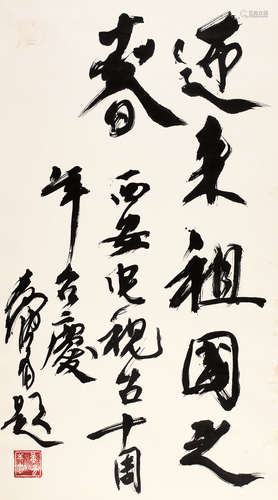 迎来祖国之
春
西安电视台十周
年台庆
题